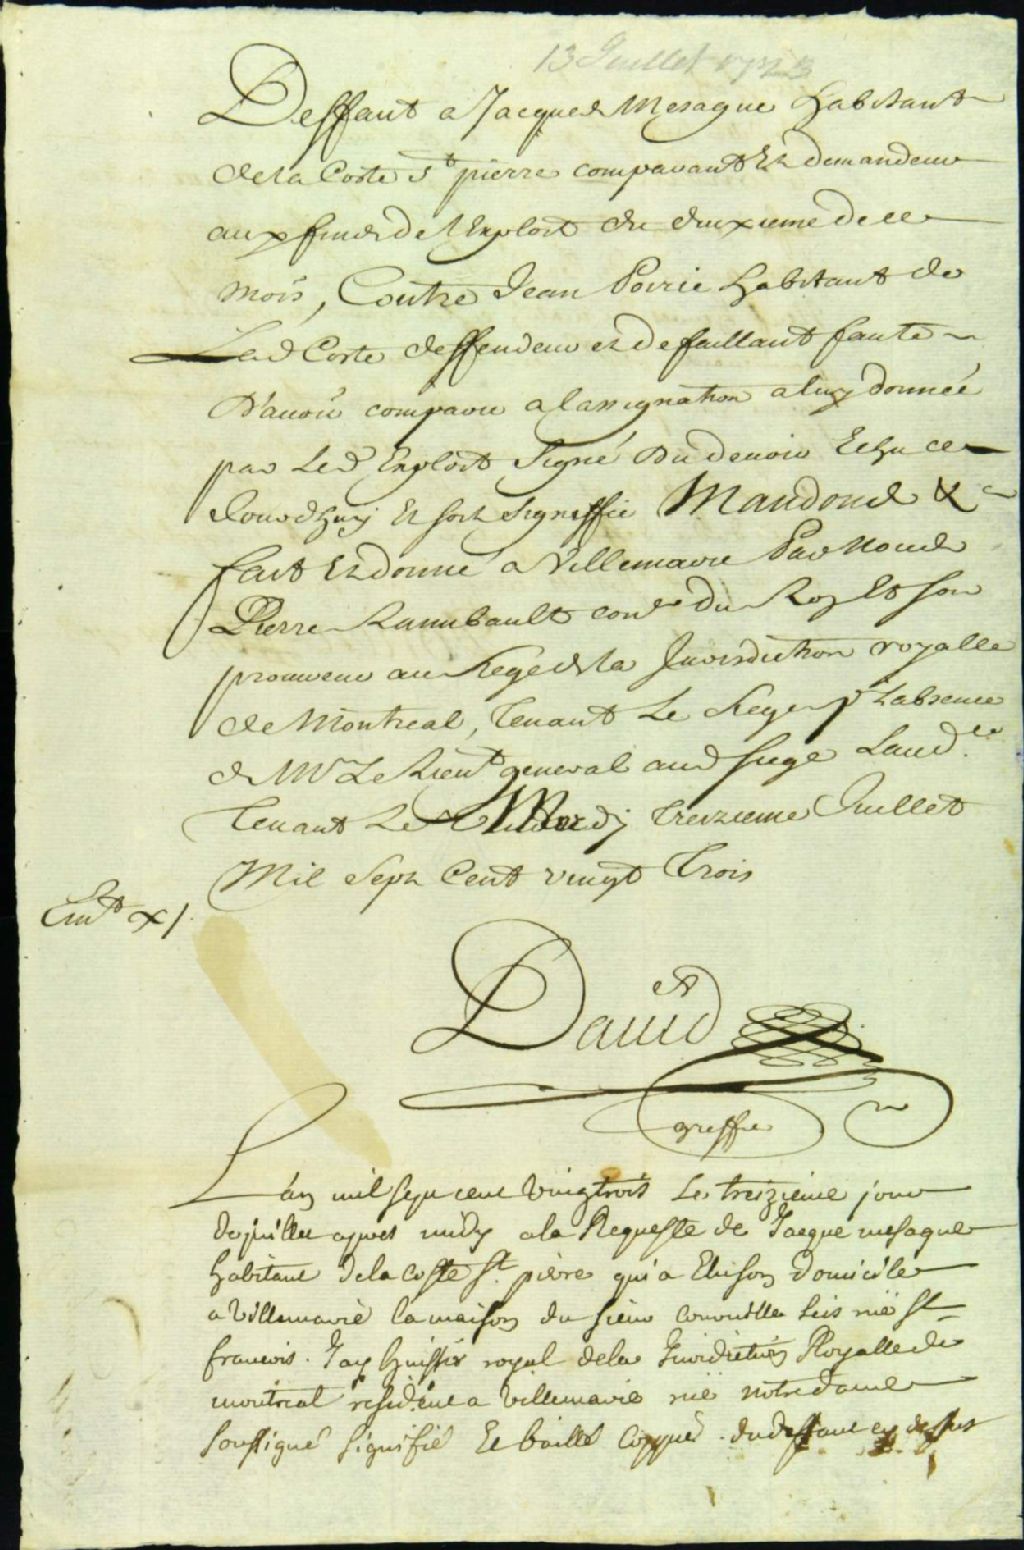 13 Juillet 1723
Deffaut a Jacques Mesague habitant
de la Coste St pierre comparant Et demandeur
aux fins de l'Exploit du deuxieme de ce
mois, Contre Jean Poirie habitant de
Lad Coste deffendeur et defaillant faute
D'auoir comparu a lassignation a luy donnée
par Led Exploit Signé Dudevoir Echu ce
Jourdhuy Et soit signiffie Mandons &
fait Et donné a Villemarie Par Nous
Pierre Raimbault conr du Roy Et son
procureur au siege de la Jurisdiction royalle
de Montreal, Tenant Le siege pr L'absence
de Mr Le Lieut general aud siege Laudce
Tenant Le Mardy treizieme Juillet
Mil Sept Cent vingt Trois
David
greffie
L'an mil sept cent vingt trois Le treizieme jour
de juillet apres midy a la Requeste de Jacque mesague
habitant de la coste St pierre qui a Elu son domicile
a villemarie la maison du sieur sise rue St
francois. Jay huissier royal de la Juridiction Royalle de
montreal residant a villemarie rue notre dame
soussigné signifié Et baillé coppie du deffaut cy dessus